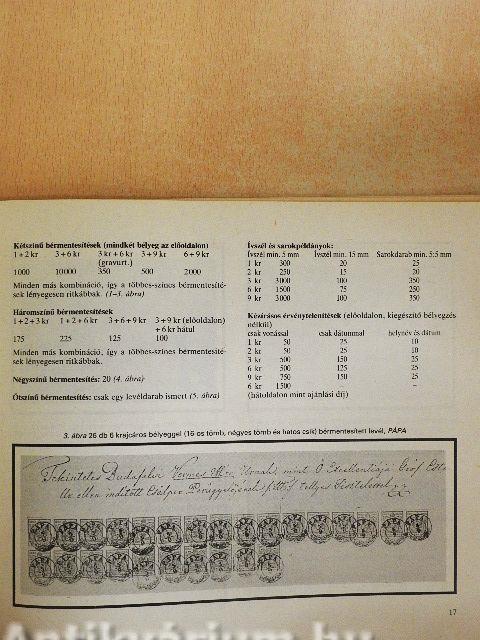 Kétszínű bérmentesítések (mindkét bélyeg az előoldalon)
1+2 kr 3+6 kr 3 kr+6 kr 3+9 kr 6+9 kr
(gravurt.)
1000 10000 350 500 2000
Minden más kombináció, így a többes-színes bérmentesíté-
sek lényegesen ritkábbak. (1–3. ábra)
Háromszínű bérmentesítések
1+2+3 kr 1+2+6 kr 3+6+9 kr 3+9 kr (előoldalon)
+6 kr hátul
175 225 125 100
Minden más kombináció, így a többes-színes bérmentesíté-
sek lényegesen ritkábbak.
Négyszínű bérmentesítés: 20 (4. ábra)
Ötszínű bérmentesítés: csak egy levéldarab ismert (5. ábra)
Ívszél és sarokpéldányok:
Ívszél min. 5 mm Ívszél min. 15 mm Sarokdarab min. 5:5 mm
1 kr 300 20 25
2 kr 250 15 20
3 kr 3000 100 350
6 kr 1500 75 250
9 kr 3000 100 350
Kézírásos érvénytelenítések (előoldalon, kiegészítő bélyegzés
nélkül)
csak vonással csak dátummal helynév és dátum
1 kr 50 25 10
2 kr 50 25 10
3 kr 500 150 25
6 kr 500 125 25
9 kr 750 150 25
6 kr 1500 –
(hátoldalon mint ajánlási díj)
3. ábra 26 db 6 krajcáros bélyeggel (16 os tömb, négyes tömb és hatos csík) bérmentesített levél, PÁPA
Tekintetes Budafalvi Vermes Illés Urnak, mint Ő Excellentiája Gróf
ellen indított tellyes tisztelettel
17
Antikvárium.hu